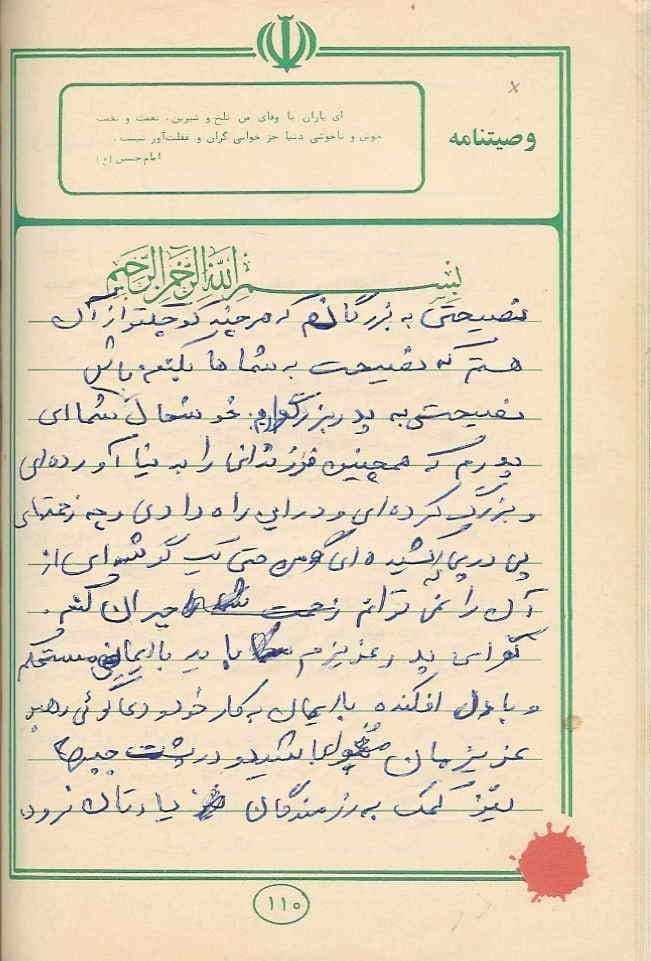 وصیتنامه
x
ای یاران با وفای من تلخ و شیرین، نعمت و نقمت
خوشی و ناخوشی دنیا جز خوابی گران و غفلت‌آور نیست.
امام حسین (ع)
بسم الله الرحمن الرحیم
نصیحتی به بزرگانم که هر چند کوچکتر از آن
هستم که نصیحت به شما ها بکنم
نصیحتی به پدر بزرگوارم: خوشحال شما ای
پدرم که همچنین فرزندانی را به دنیا آورده‌ای
و بزرگ کرده‌ای و در این راه دادی و چه زحمتهای
پی در پی کشیده‌ای که من حتی یک گوشه‌ای از
آن را نمی توانم جبران کنم.
تو ای پدر عزیزم باید با ایمانی مستحکم
و با دل افکنده با ایمان به کار خود و دعاگوئی رهبر
عزیزمان مشغول باشید و در پشت جبهه
نیز کمک به رزمندگان یادتان نرود.
۱۱۰